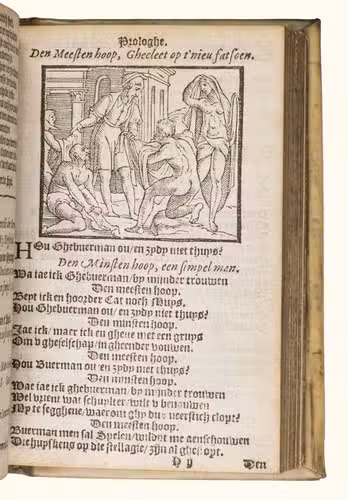 Prologhe.
Den Meesten hoop, Ghecleet op t'nieu fatsoen.
HOu Ghebuerman ou/ en zydy niet thuys?
Den Minsten hoop, een simpel man.
Wa iae ick Ghebuerman/ by mijnder trouwen
Den meesten hoop.
Bept ick en hoorder Cat noch Muys.
Hou Ghebuerman ou/ en zydy niet thuys?
Den minsten hoop.
Iae ick/ maer ick en ghene met een gruys
Om v gheselschap/ in gheender vouwen.
Den meesten hoop.
Hou Buerman ou/ en zydy niet thuys?
Den minsten hoop.
Wae iae ick ghebuerman/ by mijnder trouwen
Wel vrient wat schuylter/ wilt v
My te segghene/ waerom ghy dus veerstich clopt?
Den meesten hoop.
Buerman men sal Spelen/ wildijt me aenschouwen
Die huyskens op die stellagie/ zijn al ghestopt.
Den